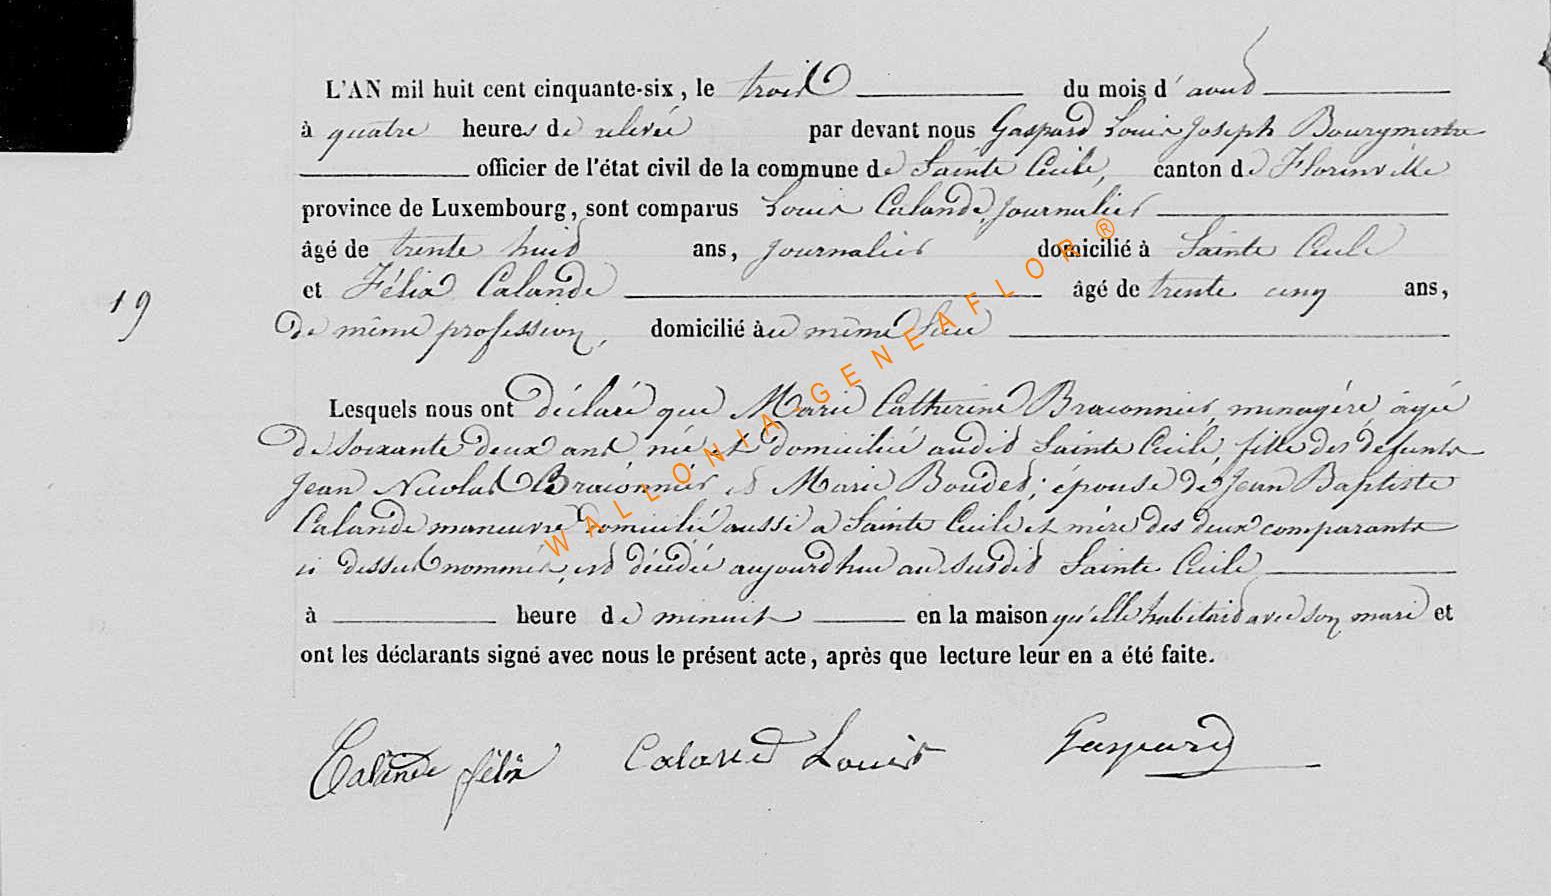 L'AN mil huit cent cinquante-six, le trois du mois d'aoud
à quatre heures de relevée par devant nous Gaspard Louis Joseph Bourgmestre
officier de l'état civil de la commune de Sainte Cecile, canton de Florenville
province de Luxembourg, sont comparus Louis Calande, journalier
âgé de trente huid ans, journalier domicilié à Sainte Cecile
et Félix Calande âgé de trente cinq ans,
de même profession, domicilié àu même lieu
19
Lesquels nous ont déclaré que Marie Catherine Braconnier, menagère âgée
de soixante deux ans née et domiciliée audit Sainte Cecile, fille des défunts
Jean Nicolas Braconnier et Marie Boudet; épouse de Jean Baptiste
Calande maneuvre domicilié aussi a Sainte Cecile et mère des deux comparants
ci dessus nommés, est décédée aujourdhui au susdit Sainte Cecile
à heure de minuit en la maison qu'elle habitaid avec son mari et
ont les déclarants signé avec nous le présent acte, après que lecture leur en a été faite.
Calande félix Calande Louis Gaspard
WALLONIA-GENEAFLOR®